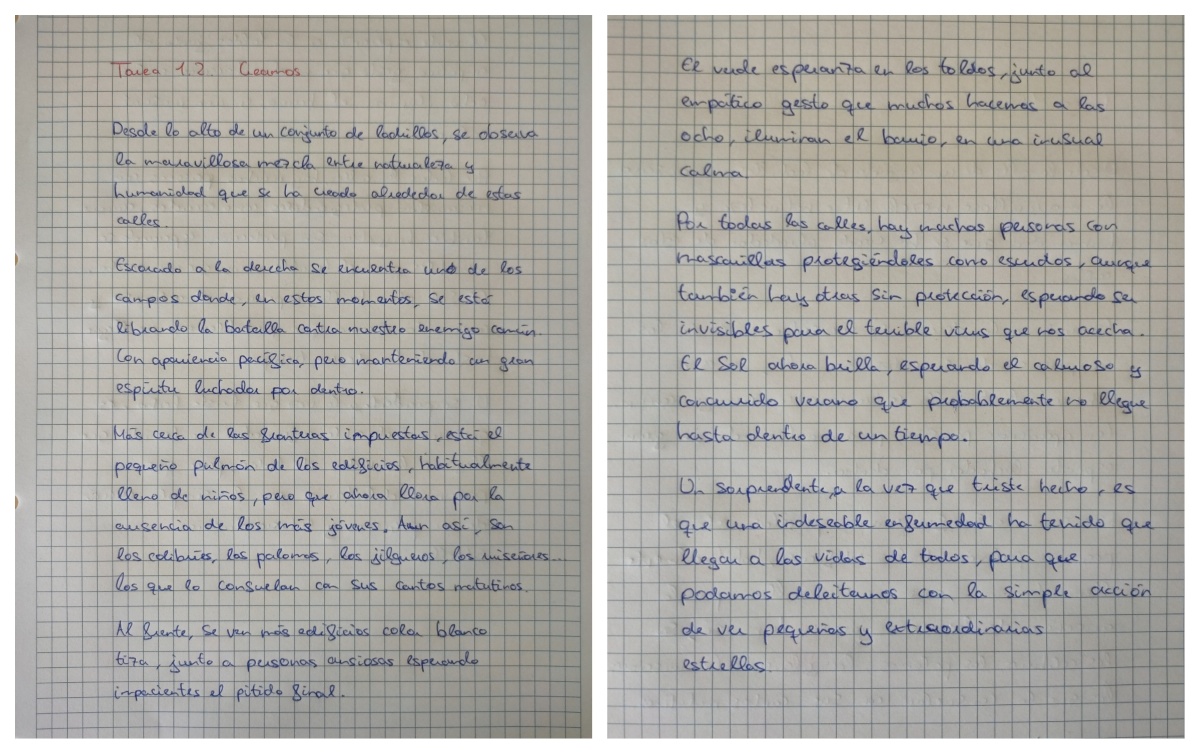 Tarea 1.2 Creamos
Desde lo alto de un conjunto de ladrillos, se observa
la maravillosa mezcla entre naturaleza y
humanidad que se ha creado alrededor de estas
calles.
Escorado a la derecha se encuentra uno de los
campos donde, en estos momentos, se está
librando la batalla contra nuestro enemigo común.
Con apariencia pacífica, pero manteniendo un gran
espíritu luchador por dentro.
Más cerca de las fronteras impuestas, está el
pequeño pulmón de los edificios, habitualmente
lleno de niños, pero que ahora llora por la
ausencia de los más jóvenes. Aun así, son
los colibríes, las palomas, los jilgueros, los miseñores...
los que lo consuelan con sus cantos matutinos.
Al frente, se ven más edificios color blanco
tiza, junto a personas ansiosas esperando
impacientes el pitido final.
El verde esperanza en los toldos, junto al
empático gesto que muchos hacemos a las
ocho, iluminan el barrio, en una inusual
calma.
Por todas las calles, hay muchas personas con
mascarillas protegiéndoles como escudos, aunque
también hay otras sin protección, esperando ser
invisibles para el terrible virus que nos acecha.
El Sol ahora brilla, esperando el caluroso y
concurrido verano que probablemente no llegue
hasta dentro de un tiempo.
Un sorprendente, a la vez que triste hecho, es
que una indeseable enfermedad ha tenido que
llegar a las vidas de todos, para que
podamos deleitarnos con la simple acción
de ver pequeñas y extraordinarias
estrellas.